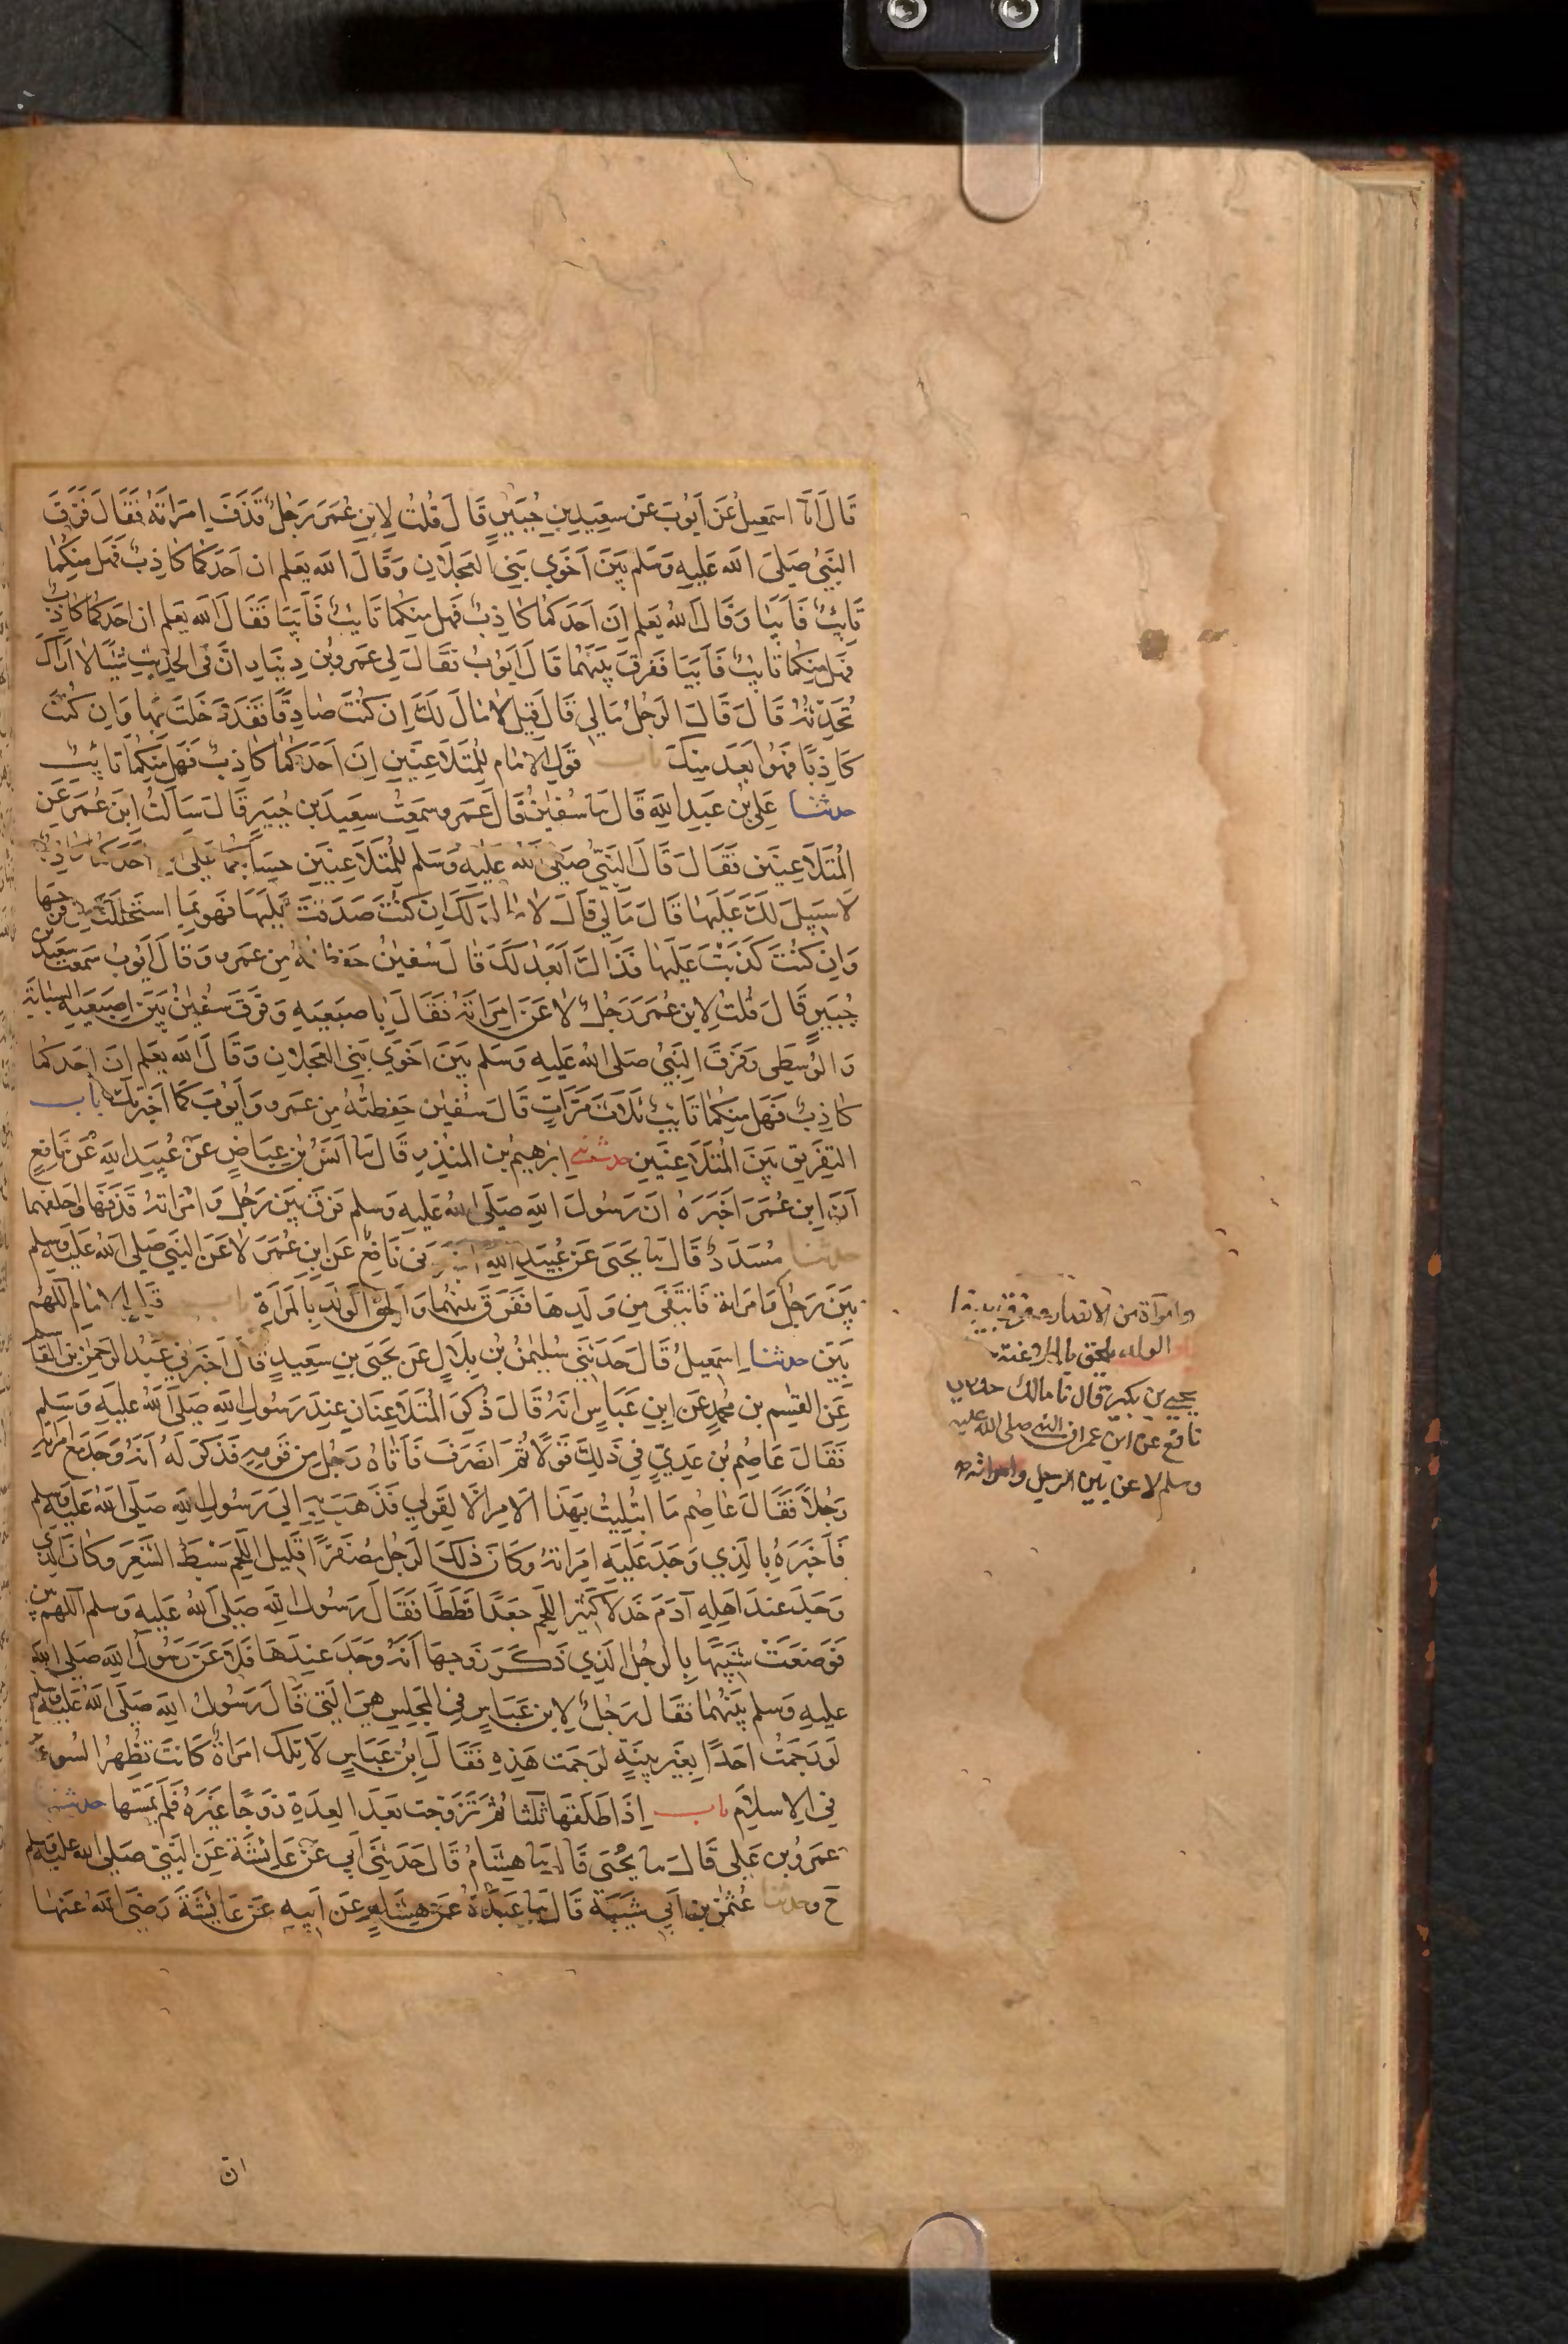 قَالَ أنَا اسمَعِيلُ عَن اَيُوبَ عَن سَعِيدِ بنِ جُبَيرٍ قَالَ قُلتُ لِابنِ عُمَرَ رَجُلٌ قَذَفَ اِمرَاتَهُ فَقَالَ فَرَّقَ
النَبيُّ صَلىَ اللهُ عَلَيهِ وَسَلم بَينَ اَخَوَي بَنِي العَجلَانِ وَقَالَ اللهُ يَعلم ان اَحَدَكمَا كَاذِبٌ فَهل مِنكُمَا
تَائِبٌ فَاَبَيَا وَقَالَ اللهُ يَعلَم اِنَ اَحَدَكمَا كَاذِبٌ فَهل مِنكمَا تَايبٌ فَاَبَيَا فَقَالَ اللهُ يَعلَم ان احَدَكمَا كَاذِبٌ
فَهل مِنكمَا تَايبٌ فَاَبَيَا فَفَرقَ بَينَهُمَا قَالَ اَيُوبُ فَقَالَ لِي عَمرو بن دِينَارٍ انَّ فى الحَدِيثِ شَيئًا لَا اَرَاكَ
تُحَدِّثُهُ قَالَ قَالَ الرَجُلُ مَالِي قَالَ قِيلَ لَا مَالَ لَكَ اِن كُنتَ صَادِقًا فَقَد دَخَلتَ بِهَا وَاِن كُنتَ
كَاذِبًا فَهُوَ اَبعَدُ مِنكَ باب قَولِ الاِمَامِ لِلمُتَلَاعِنَينِ اِنَ اَحَدَكُمَا كَاذِبٌ فَهَل مِنكُمَا تَائِبٌ
حدثنا عَلِي بنُ عَبدِ اللهِ قَالَ نَا سُفينُ قَالَ عَمرو سَمِعتُ سَعِيدَ بن جُبَيرٍ قَالَ سَاَلتُ ابنَ عُمَرَ عَنِ
المُتَلَاعِنَينِ فَقَالَ قَالَ النَبيُّ صَلىَ اللهُ عَلَيهِ وَسَلم لِلمُتَلَاعِنَينِ حِسَابُكُمَا عَلىَ اللهِ اَحَدُكُمَا كَاذِبٌ
لَا سَبِيلَ لَكَ عَلَيهَا قَالَ مَالِي قَالَ لَا مَالَ لَكَ اِن كُنتَ صَدَقتَ عَلَيهَا فَهوَ بِمَا استَحلَلتَ مِن فَرجِهَا
وَاِن كُنتَ كَذَبتَ عَلَيهَا فَذَاكَ اَبعَدُ لَكَ قَالَ سُفينُ حَفِظتُهُ مِن عَمرو وَقَالَ اَيُوبُ سَمِعتُ سَعِيدَ بنَ
جُبَيرٍ قَالَ قُلتُ لِابنِ عُمَرَ رَجُلٌ لَاعَنَ امرَاتَهُ فَقَالَ بِاصبَعَيهِ وَفَرَّقَ سُفينُ بَينَ اِصبَعَيهِ السَبَابَةِ
وَالوُسطَى وَفَرَقَ النَبيُّ صَلى اللهُ عَلَيهِ وَسَلم بَينَ اَخَوَي بَنِي العَجلَانِ وَقَالَ اللهُ يَعلَم اِنَ احَدَكمَا
كَاذِبٌ فَهَل مِنكمَا تَايبٌ ثَلَاثَ مَرَّاتٍ قَالَ سُفين حَفِظتُهُ مِن عَمرو وَاَيُوبَ كَمَا اَخبَرتُكَ باب
التفرِيقِ بَينَ المُتَلَاعِنَينِ حدثني اِبرَهِيم بن المُنذِرِ قَالَ نَا اَنَسُ بن عِيَاضٍ عَن عُبَيدِ اللهِ عَن نَافِعٍ
اَنَّ ابنَ عُمَرَ اَخبَرَهُ انَ رَسُولَ اللهِ صَلَى اللهُ عَلَيهِ وَسَلم فَرقَ بَينَ رَجُلٍ وَامرَاتِهِ قَذَفَهَا وَاَحلَفَهُمَا
حدثنا مُسَدَدٌ قَالَ نَا يَحيَى عَن عُبَيدِ اللهِ اخبَرَنِى نَافِعٌ عَنِ ابنِ عُمَرَ لَاعَنَ النَبي صَلى اللهُ عَلَيهِ وَسَلم
بَينَ رَجُلٍ وَامرَاةٍ فَانتَفَى مِن وَلَدِهَا فَفَرَقَ بَينَهُمَا وَاَلحَقَ الوَلَدَ بِالمَراَةِ باب قَولِ الامَامِ اللَّهُم
بَيِّن حدثنا اِسمَعِيلُ قَالَ حَدَثَنِي سُلَيمنُ بن بِلَالٍ عَن يَحيَى بنِ سَعِيدٍ قَالَ اَخبَرَنِي عَبدُ الرَحمن بن القَاسِمِ
عَنِ القسِم بن مُحَمدٍ عَنِ ابنِ عَبَاسٍ انَّهُ قَالَ ذُكِرَ المُتَلَاعِنَانِ عِندَ رَسُولِ اللهِ صَلَى اللهُ عَلَيهِ وَسَلم
فَقَالَ عَاصِمُ بن عَدِيٍّ فِي ذَلِكَ قَولًا ثُمَّ انصَرَفَ فَاَتَاهُ رَجُلٌ مِن قَومِهِ فَذَكَرَ لَهُ اَنَهُ وَجَدَ مَعَ امرَاتِهِ
رَجُلًا فَقَالَ عَاصِم مَا ابتُلِيتُ بِهَذَا الاَمرِ اِلَّا لِقَولِي فَذَهَبَ بِهِ اِلىَ رَسُولِ اللهِ صَلَى اللهُ عَلَيهِ وَسَلم
فَاَخبَرَهُ بِالَذِي وَجَدَ عَلَيهِ امرَاتَهُ وَكَانَ ذَلِكَ الرَجُلُ مُصفَرًّا قَلِيلَ اللَّحمِ سَبطَ الشَّعَرِ وَكَانَ الَّذِي
وَجَدَ عِندَ اَهلِهِ آدَمَ خَدلًا كَثِيرَ اللَّحمِ جَعدًا قَطَطًا فَقَالَ رَسُولُ اللهِ صَلَى اللهُ عَلَيهِ وَسلم اَللَّهُم بَيِّن
فَوَضَعَت شَبِيهًا بِالرَجُلِ الَّذِي ذَكَرَ زَوجُهَا اَنَّهُ وَجَدَ عِندَهَا فَلَاعَنَ رَسُولُ اللهِ صَلى اللهُ
عَلَيهِ وَسلم بَينَهُمَا فَقَالَ رَجُلٌ لِابنِ عَبَاسٍ فِي المَجلِسِ هِيَ الَّتِي قَالَ رَسُولُ اللهِ صَلَى اللهُ عَلَيهِ وَسلم
لَو رَجَمتُ احَدًا بِغَيرِ بَيِّنَةٍ لَرَجَمتُ هَذِهِ فَقَالَ اِبنُ عَبَاسٍ لَا تِلكَ امرَاةٌ كَانَت تُظهِرُ السُوءَ
فِي الاِسلَامِ باب اِذَا طَلَّقَهَا ثَلثًا ثُمَّ تَزَوَّجَت بَعدَ العِدَةِ زَوجًا غَيرَهُ فَلَم يَمَسَّهَا حدثنا
عَمرُو بن عَلِي قَالَ نَا يَحيَى قَالَ نَا هِشَامٌ قَالَ حَدَثَنِي اَبِي عَن عَائِشَةَ عَنِ النَبي صَلى اللهُ عَلَيهِ وَسَلم
ح وحدثنا عُثمنُ بن اَبِي شَيبَةَ قَالَ نَا عَبدَةُ عَن هِشَامٍ عَن اَبِيهِ عَن عَايشَةَ رَضَى اللهُ عَنهَا
وامرآة من الانصار وفرق بينهما
الولد يلحق بالملاعنة
يحيى بن بكير قال نا مالك حدثنى
نافع عن ابن عمر ان النبى صلى الله عليه
وسلم لاعن بين الرجل وامراته
ان